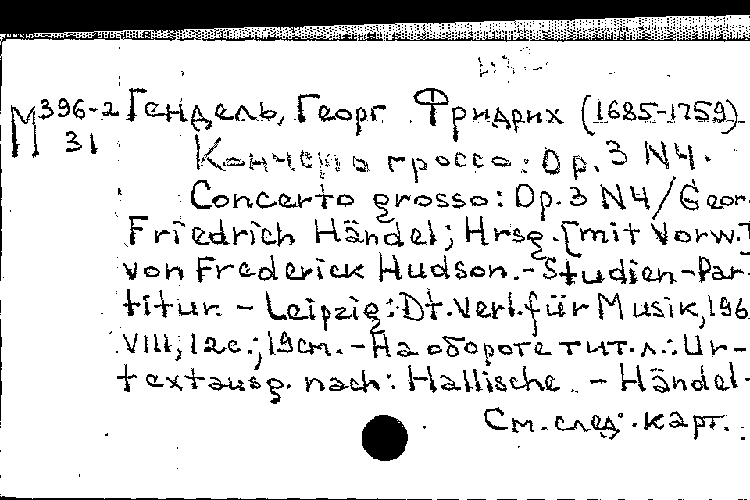 М 396-2 Гендель, Георг Фридрих (1685-1759)
31
Кончерто гроссо: Op. 3 N4.
Concerto grosso: Op. 3 N4/Geor
Friedrich Händel; Hrsg. [mit Vorw.]
von Frederick Hudson. - Studien-Par-
titur. - Leipzig: Dt. Verl. für Musik, 196
VIII, 12c.; 19cm. - На обороте тит. л.: Ur-
textausg. nach: Hallische - Händel-
См. след. карт.